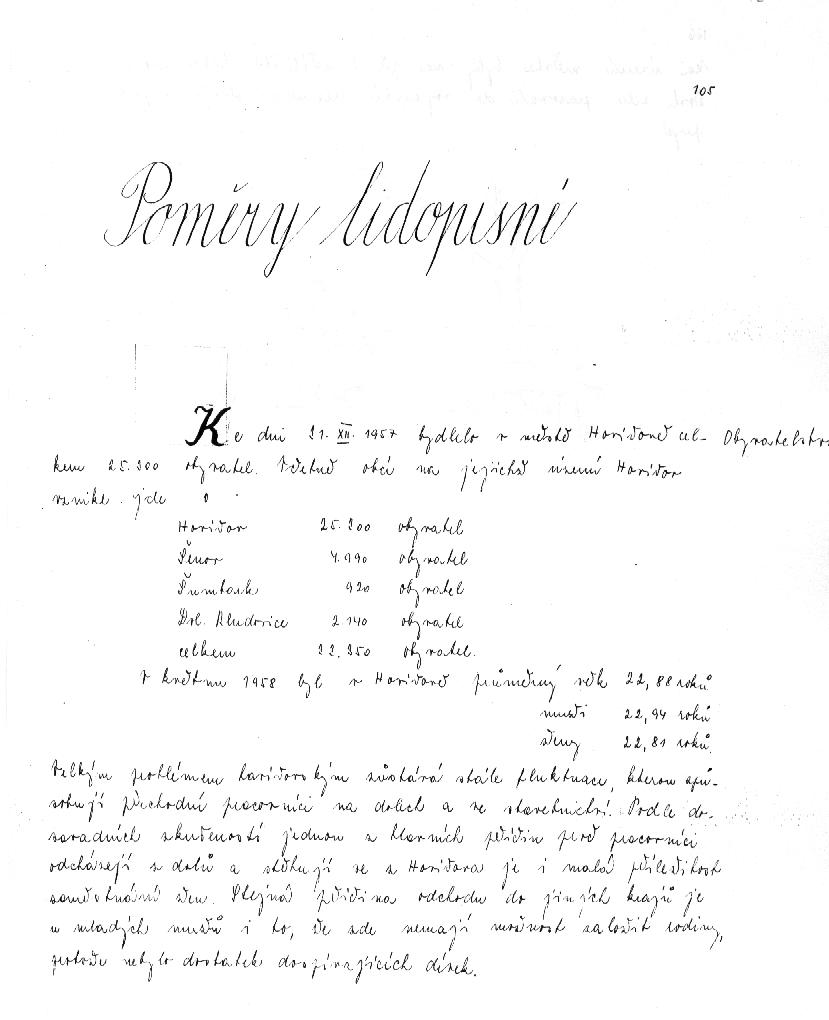 105
Poměry lidopisné
Ke dni 31. XII. 1957 bydlelo v městě Havířově cel- Obyvatelstv
kem 25.300 obyvatel. Včetně obcí na jejichž území Havířov
vznikl jde o
Havířov 25.300 obyvatel
Šenov 4.990 obyvatel
Šumbark 920 obyvatel
Dol. Bludovice 2 140 obyvatel
celkem obyvatel.
V květnu 1958 byl v Havířově průměrný věk 22,88 roků
muži 22,94 roků
ženy 22,81 roků.
Velkým problémem havířovským zůstává stále fluktuace, kterou způ-
sobují přechodní pracovníci na dolech a ve stavebnictví. Podle do-
savadních zkušeností jednou z hlavních příčin proč pracovníci
odcházejí z dolů a stěhují se z Havířova je i malá příležitost
zaměstnání žen. Stejná příčina odchodu do jiných krajů je
u mladých mužů i to, že zde nemají možnost založit rodiny,
protože nebylo dostatek dospívajících dívek.